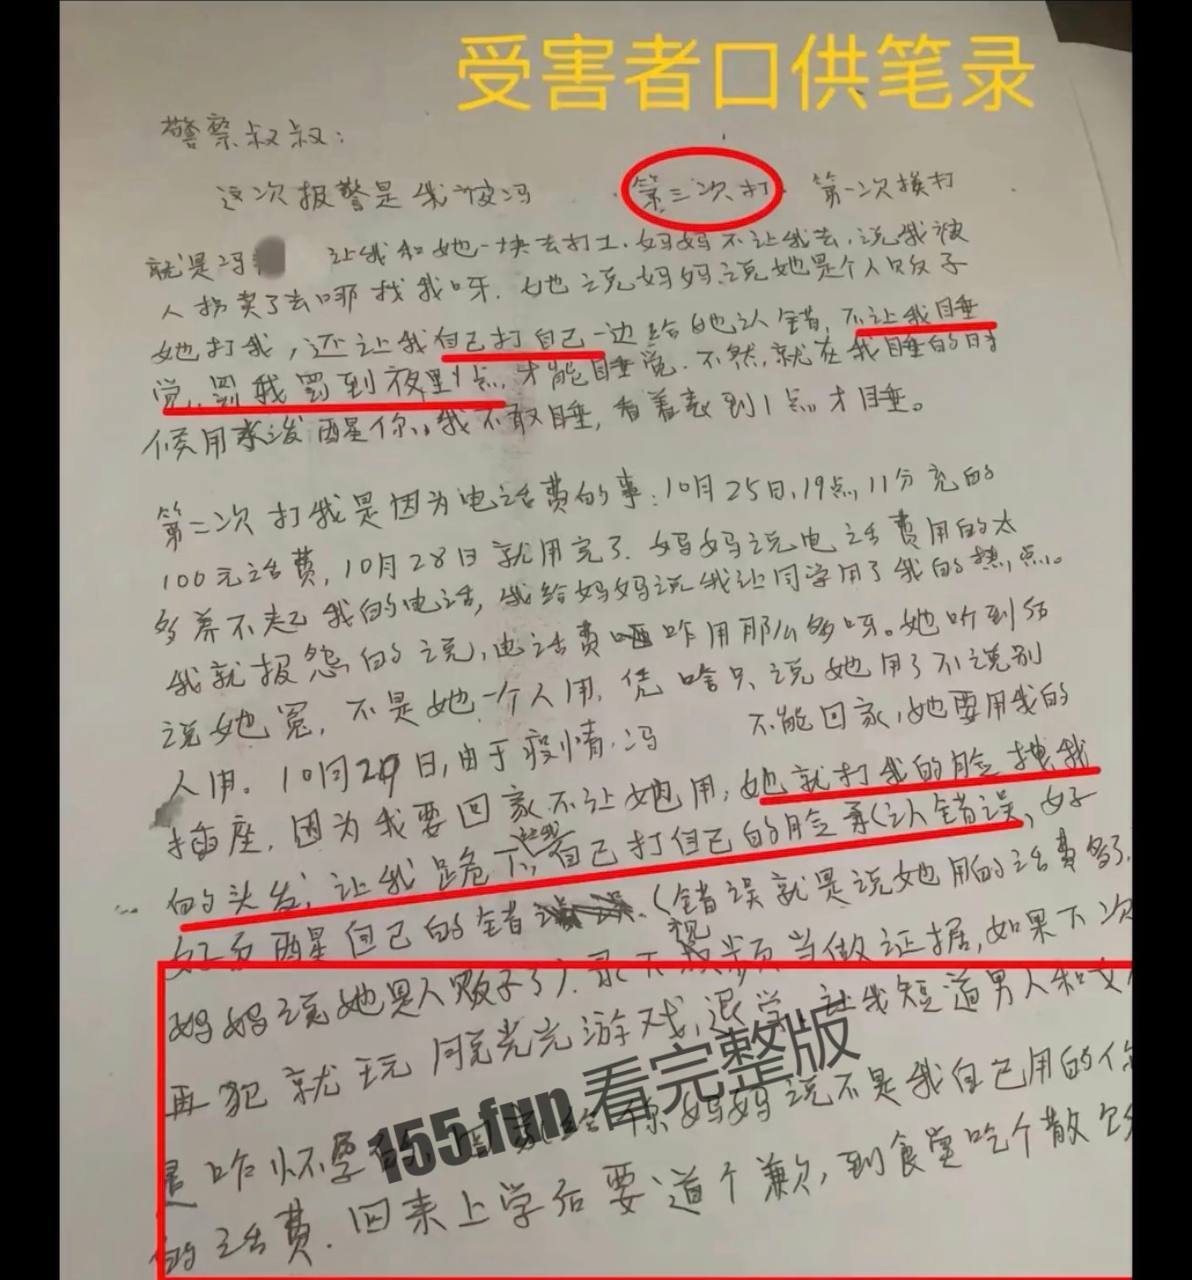 受害者口供笔录
警察叔叔:
这次报警是我被冯 第三次打. 第一次挨打
就是冯 让我和她一块去打工.妈妈不让我去,说我被
人拐卖了去哪找我呀.她说妈妈说她是个人贩子
她打我,还让我自己打自己一边给她认错,不让我睡
觉,罚我罚到夜里1点,才能睡觉.不然,就在我睡的时
候用水泼醒你。我不敢睡,看着表到1点才睡。
第二次打我是因为电话费的事.10月25日,19点,11分充的
100元话费,10月28日就用完了.妈妈说电话费用的太
多养不起我的电话,我给妈妈说我让同学用了我的热点。
我就报怨的说,电话费咋用那么多呀。她听到后
说她冤,不是她一个人用,凭啥只说她用了不说别
人用。10月29日,由于疫情,冯 不能回家,她要用我的
插座,因为我要回家不让她用,她就打我的脸拽我
的头发,让我跪下,自己打自己的脸承认错误,好
好反醒自己的错 .(错误就是说她用的话费多了,
妈妈说她是人贩子了).录下视频当做证据,如果下次
再犯就玩脱光光游戏,退学,让我知道男人和女
是咋怀孕的, 你妈妈说不是我自己用的你
的话费.回来上学后要道个歉,到食堂吃个散
155.fun 看完整版